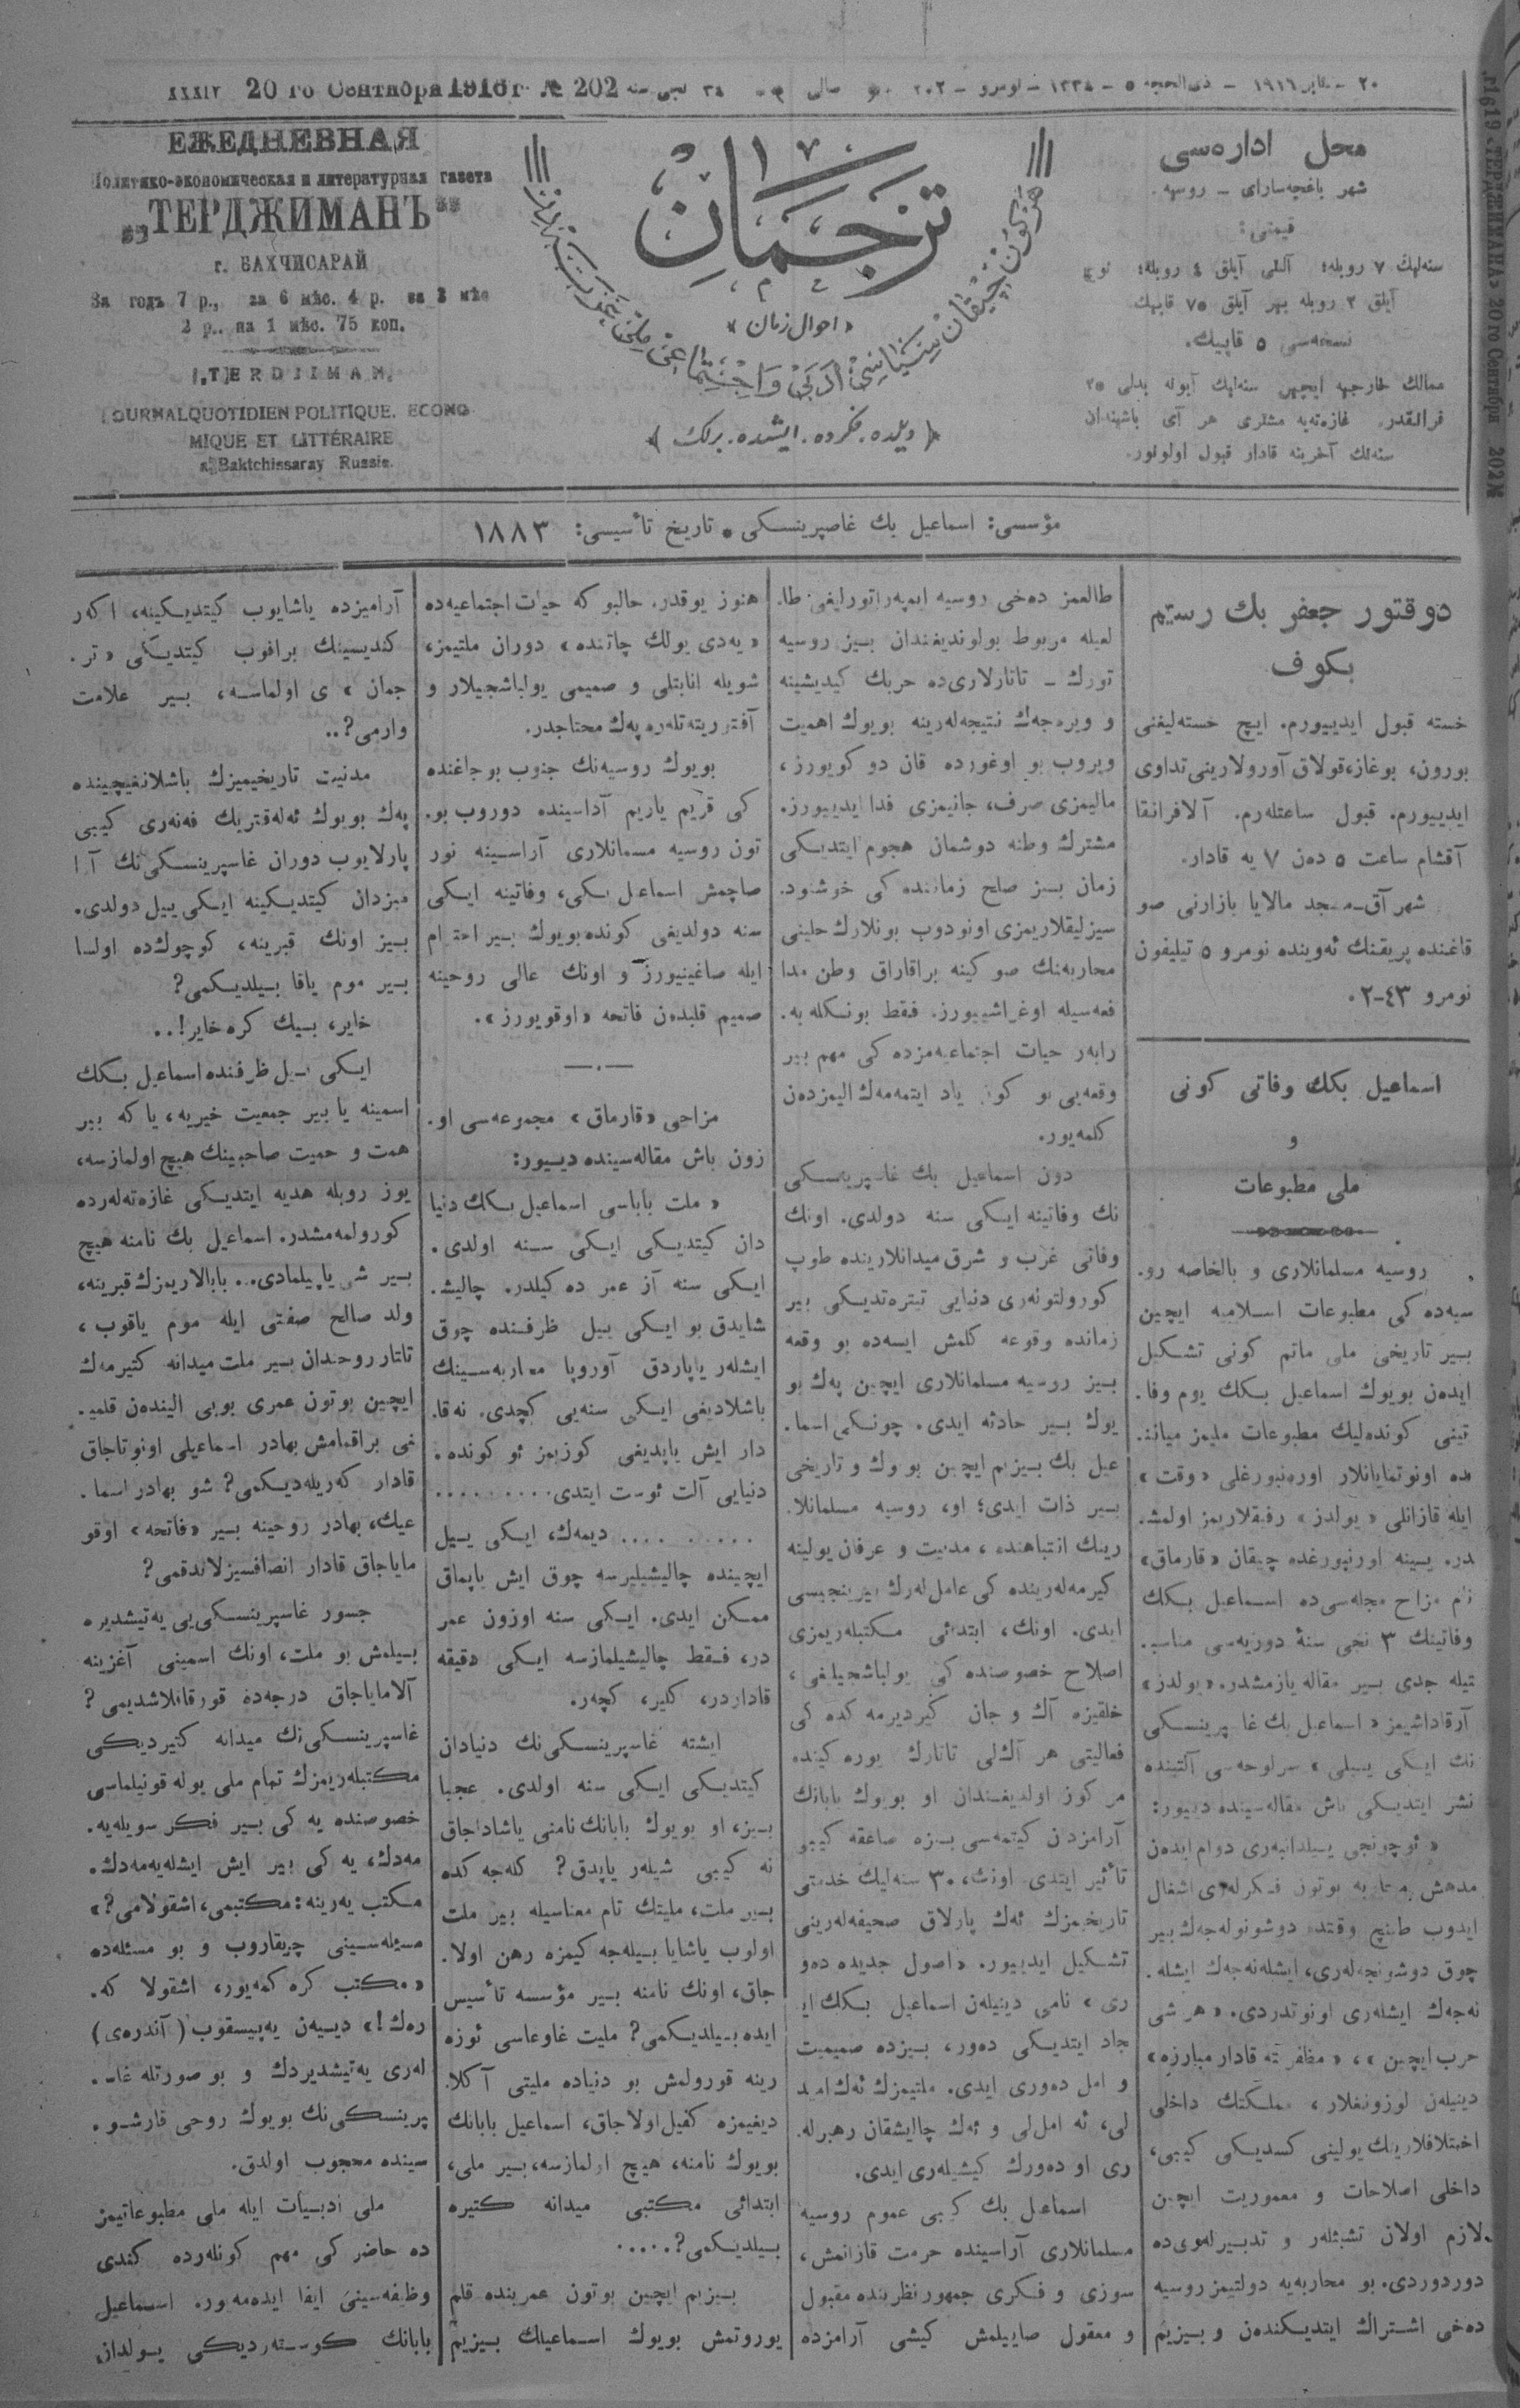 XXXIV 20 го Сентября 1916 г. № 202
ЕЖЕДНЕВНАЯ
Политико-экономическая и литературная газета
„ТЕРДЖИМАНЪ"
г. БАХЧИСАРАЙ
За годъ 7 р., за 6 мѣс. 4 р. за 3 мѣс
2 р., на 1 мѣс. 75 коп.
TERDJIMAN
JOURNAL QUOTIDIEN POLITIQUE. ECONO
MIQUE ET LITTÉRAIRE
a Baktchissaray Russie.
ترجمان
«احوال زمان»
﴿ دیلده. فکرده. ایشده. برلك ﴾
محل اداره‌سی
شهر باغچه‌سارای ـ روسیه.
قیمتی:
سنه‌لیك ۷ روبله؛ آلتی آیلق ٤ روبله؛
آیلق ۲ روبله بیر آیلق ۷۵ قاپیك
نسخه‌سی ۵ قاپیك.
ممالك خارجیه ایچین سنه‌لیك آبونه بدلی ۲۵
فرانقدر. غازه‌ته‌یه مشتری هر آی باشیندان
سنه‌نك آخرینه قادار قبول اولونور.
«ТЕРДЖИМАНА» 20 го Сентября 202№
مؤسسی: اسماعیل بك غاصپرینسکی * تاریخ تأسیسی: ۱۸۸۳
دوقتور جعفر بك رستم
بکوف
خسته قبول ایدییورم. ایچ خسته‌لیغنی
بورون، بوغاز، قولاق آورولارینی تداوی
ایدییورم. قبول ساعتلەرم. آلافرانقا
آقشام ساعت ۵ دەن ۷ یه قادار.
شهر آق‌ـمسجد مالایا بازارنی صو
قاغنده پریقنك ئەوینده نومرو ۵ تیلیفون
نومرو ٤۳-۲۰
اسماعیل بکك وفاتی کونی
و
ملی مطبوعات
روسیه مسلمانلاری و بالخاصه رو.
سیه‌ده کی مطبوعات اسلامیه ایچین
بیر تاریخی ملی ماتم کونی تشکیل
ایدەن بویوك اسماعیل بکك یوم وفا.
تینی کونده‌لیك مطبوعات ملیمز میانـ
ده اونوتمایانلار اورەنبورغلی «وقت»
ایله قازانلی «یولدز» رفیقلاریمز اولمشـ
در. یینه اورنبورغده چیقان «قارماق»
نام مزاح مجله‌سی‌ده اسماعیل بکك
وفاتینك ۳ نجی سنهٔ دوریه‌سی مناسبـ
تیله جدی بیر مقاله یازمشدر. «یولدز»
آرقاداشیمز «اسماعیل بك غاسپرینسکی
نك ایکی ییلی» سرلوحه‌سی آلتینده
نشر ایتدیکی باش مقاله‌سینده دییور:
«ئوچونجی ییلدانبەری دوام ایدەن
مدهش محاربه بوتون فکرلەری اشغال
ایدوب طینچ وقتده دوشونولەجەك بیر
چوق دوشونجەلەری، ایشلەنەجەك ایشلە.
نەجەك ایشلەری اونوتدردی. «هر شی
حرب ایچین»، «مظفریته قادار مبارزه»
دینیلەن لوزونغلار، مملکتك داخلی
اختلافلارینك یولینی کسدیکی کیبی،
داخلی اصلاحات و معموریت ایچین
لازم اولان تشبثلەر و تدبیرلەری‌ده
دوردوردی. بو محاربه‌یه دولتیمز روسیه
ده‌خی اشتراك ایتدیکندەن و بیزیم
طالعمز دەخی روسیه ایمپەراتورلیغی طا.
لعیله مربوط بولوندیغندان بیز روسیه
تورك ـ تاتارلاری‌ده حربك کیدیشینه
و ویرەجەك نتیجەلەرینه بویوك اهمیت
ویروب بو اوغورده قان دوکویورز،
مالیمزی صرف، جانیمزی فدا ایدییورز.
مشترك وطنه دوشمان هجوم ایتدیکی
زمان بیز صلح زماننده کی خوشنود.
سیزلیقلاریمزی اونودوب بونلارك حلینی
محاربه‌نك صوکینه براقاراق وطن مدا
فعه‌سیله اوغراشییورز. فقط بونکله به.
رابەر حیات اجتماعیه‌مزده کی مهم بیر
وقعه‌یی بو کون یاد ایتمەمەك الیمزدەن
کلمەیور.
دون اسماعیل بك غاسپرینسکی
نك وفاتینه ایکی سنه دولدی. اونك
وفاتی غرب و شرق میدانلارینده طوپ
کورولتونەری دنیایی تیترەتدیکی بیر
زمانده وقوعه کلمش ایسەده بو وقعه
بیز روسیه مسلمانلاری ایچین پەك بو
یوك بیر حادثه ایدی. چونکی اسما.
عیل بك بیزم ایچین بویوك و تاریخی
بیر ذات ایدی؛ او، روسیه مسلمانلا.
رینك انتباهنده، مدنیت و عرفان یولینه
کیرمەلەرینده کی عامللەرك بیرینجیسی
ایدی. اونك، ابتدائی مکتبلەریمزی
اصلاح خصوصنده کی یولباشجیلغی،
خلقیزه آك و جان کیردیرمەکده کی
فعالیتی هر آك‌لی تاتارك یوره‌کینده
مرکوز اولدیغندان او بویوك بابانك
آرامزدن کیتمه‌سی بزه صاعقه کیبی
تأثیر ایتدی. اونك، ۳۰ سنه‌لیك خدمتی
تاریخمزك ئەك پارلاق صحیفه‌لەرینی
تشکیل ایدییور. «اصول جدیده دەو
ری» نامی دینیلەن اسماعیل بکك ایـ
جاد ایتدیکی دەور، بیزده صمیمیت
و امل دەوری ایدی. ملتیمزك ئەك امید
لی، ئه امل‌لی و ئەك چالیشقان رهبرلە.
ری او دەورك کیشیلەری ایدی.
اسماعیل بك کیبی عموم روسیه
مسلمانلاری آراسینده حرمت قازانمش،
سوزی و فکری جمهور نظرینده مقبول
و معقول صاییلمش کیشی آرامزده
هنوز یوقدر. حالبو که حیات اجتماعیه‌ده
«یه‌دی یولك چاتنده» دوران ملتیمز،
شویله انابتلی و صمیمی یولباشجیلار و
آفتوریتەتلەره پەك محتاجدر.
بویوك روسیه‌نك جنوب بوجاغنده
کی قریم یاریم آداسینده دوروب بو.
تون روسیه مسلمانلاری آراسینه نور
صاچمش اسماعیل بکی، وفاتینه ایکی
سنه دولدیغی کونده بویوك بیر احترام
ایله صاغینیورز و اونك عالی روحینه
صمیم قلبدەن فاتحه «اوقویورز».
مزاحی «قارماق» مجموعه‌سی او.
زون باش مقاله‌سینده دییور:
«ملت باباسی اسماعیل بکك دنیا
دان کیتدیکی ایکی سنه اولدی.
ایکی سنه آز عمر ده‌کیلدر. چالیشـ
شایدق بو ایکی ییل ظرفنده چوق
ایشلەر یاپاردق آوروپا محاربه‌سینك
باشلادیغی ایکی سنه‌یی کچدی. نه قا.
دار ایش یاپدیغی کوزیمز ئو کونده.
دنیایی آلت ئوست ایتدی.........
.......... دیمەك، ایکی ییل
ایچینده چالیشیلیرسه چوق ایش یاپماق
ممکن ایدی. ایکی سنه اوزون عمر
در، فقط چالیشیلمازسه ایکی دقیقه
قاداردر، کلیر، کچەر.
ایشته غاسپرینسکی‌نك دنیادان
کیتدیکی ایکی سنه اولدی. عجبا
بیز، او بویوك بابانك نامنی یاشاداجاق
نه کیبی شیلەر یاپدق؟ کله‌جه کده
بیر ملت، ملیتك تام معناسیله بیر ملت
اولوب یاشایا بیله‌جه کیمزه رهن اولا.
جاق، اونك نامنه بیر مؤسسه تأسیس
ایده بیلدیکمی؟ ملیت غاوغاسی ئوزه
رینه قورولمش بو دنیاده ملیتی آکلا.
دیغیمزه کفیل اولاجاق، اسماعیل بابانك
بویوك نامنه، هیچ اولمازسه، بیر ملی،
ابتدائی مکتبی میدانه کتیره
بیلدیکمی؟.....
بیزیم ایچین بوتون عمرینده قلم
یوروتمش بویوك اسماعیلك بیزیم
آرامیزده یاشایوب کیتدیکینه، اکەر
کندیسینك براقوب کیتدیکی «تر.
جمان» ی اولماسه، بیر علامت
وارمی؟..
مدنیت تاریخیمیزك باشلانغیچینده
پەك بویوك ئەلەقتریك فەنەری کیبی
پارلایوب دوران غاسپرینسکی‌نك آرا
میزدان کیتدیکینه ایکی ییل دولدی.
بیز اونك قبرینه، کوچوك‌ده اولسا
بیر موم یاقا بیلدیکمی؟
خایر، بیك کره خایر!..
ایکی ییل ظرفنده اسماعیل بکك
اسمینه یا بیر جمعیت خیریه، یا که بیر
همت و حمیت صاحبینك هیچ اولمازسه،
یوز روبله هدیه ایتدیکی غازەتەلەرده
کورولمەمشدر. اسماعیل بك نامنه هیچ
بیر شی یاپیلمادی... بابالاریمزك قبرینه،
ولد صالح صفتی ایله موم یاقوب،
تاتار روحندان بیر ملت میدانه کتیرمەك
ایچین بوتون عمری بویی الیندەن قلمیـ
نی براقمامش بهادر اسماعیلی اونوتاجاق
قادار کەریلەدیکمی؟ شو بهادر اسما.
عیلك، بهادر روحینه بیر «فاتحه» اوقو
مایاجاق قادار انصافسیزلاندقمی؟
جسور غاسپرینسکی‌یی یەتیشدیره
بیلمش بو ملت، اونك اسمینی آغزینه
آلامایاجاق درجه‌ده قورقاقلاشدیمی؟
غاسپرینسکی‌نك میدانه کتیردیکی
مکتبلەریمزك تمام ملی یوله قونیلماسی
خصوصنده یه کی بیر فکر سویله‌یه.
مەدك، یه کی بیر ایش ایشلەیەمەدك.
مکتب یەرینه: مکتبمی، اشقولامی؟»
مسئله‌سینی چیقاروب و بو مسئله‌ده
«مکتب کره کمەیور، اشقولا کە.
رەك!» دییەن یەپیسقوب (آندرەی)
لەری یەتیشدیردك و بو صورتله غاسـ
پرینسکی‌نك بویوك روحی قارشو.
سینده محجوب اولدق.
ملی ادبیات ایله ملی مطبوعاتیمز
ده حاضر کی مهم کونلەرده کندی
وظیفه‌سینی ایفا ایدەمەیور. اسماعیل
بابانك کوستەردیکی یولدان